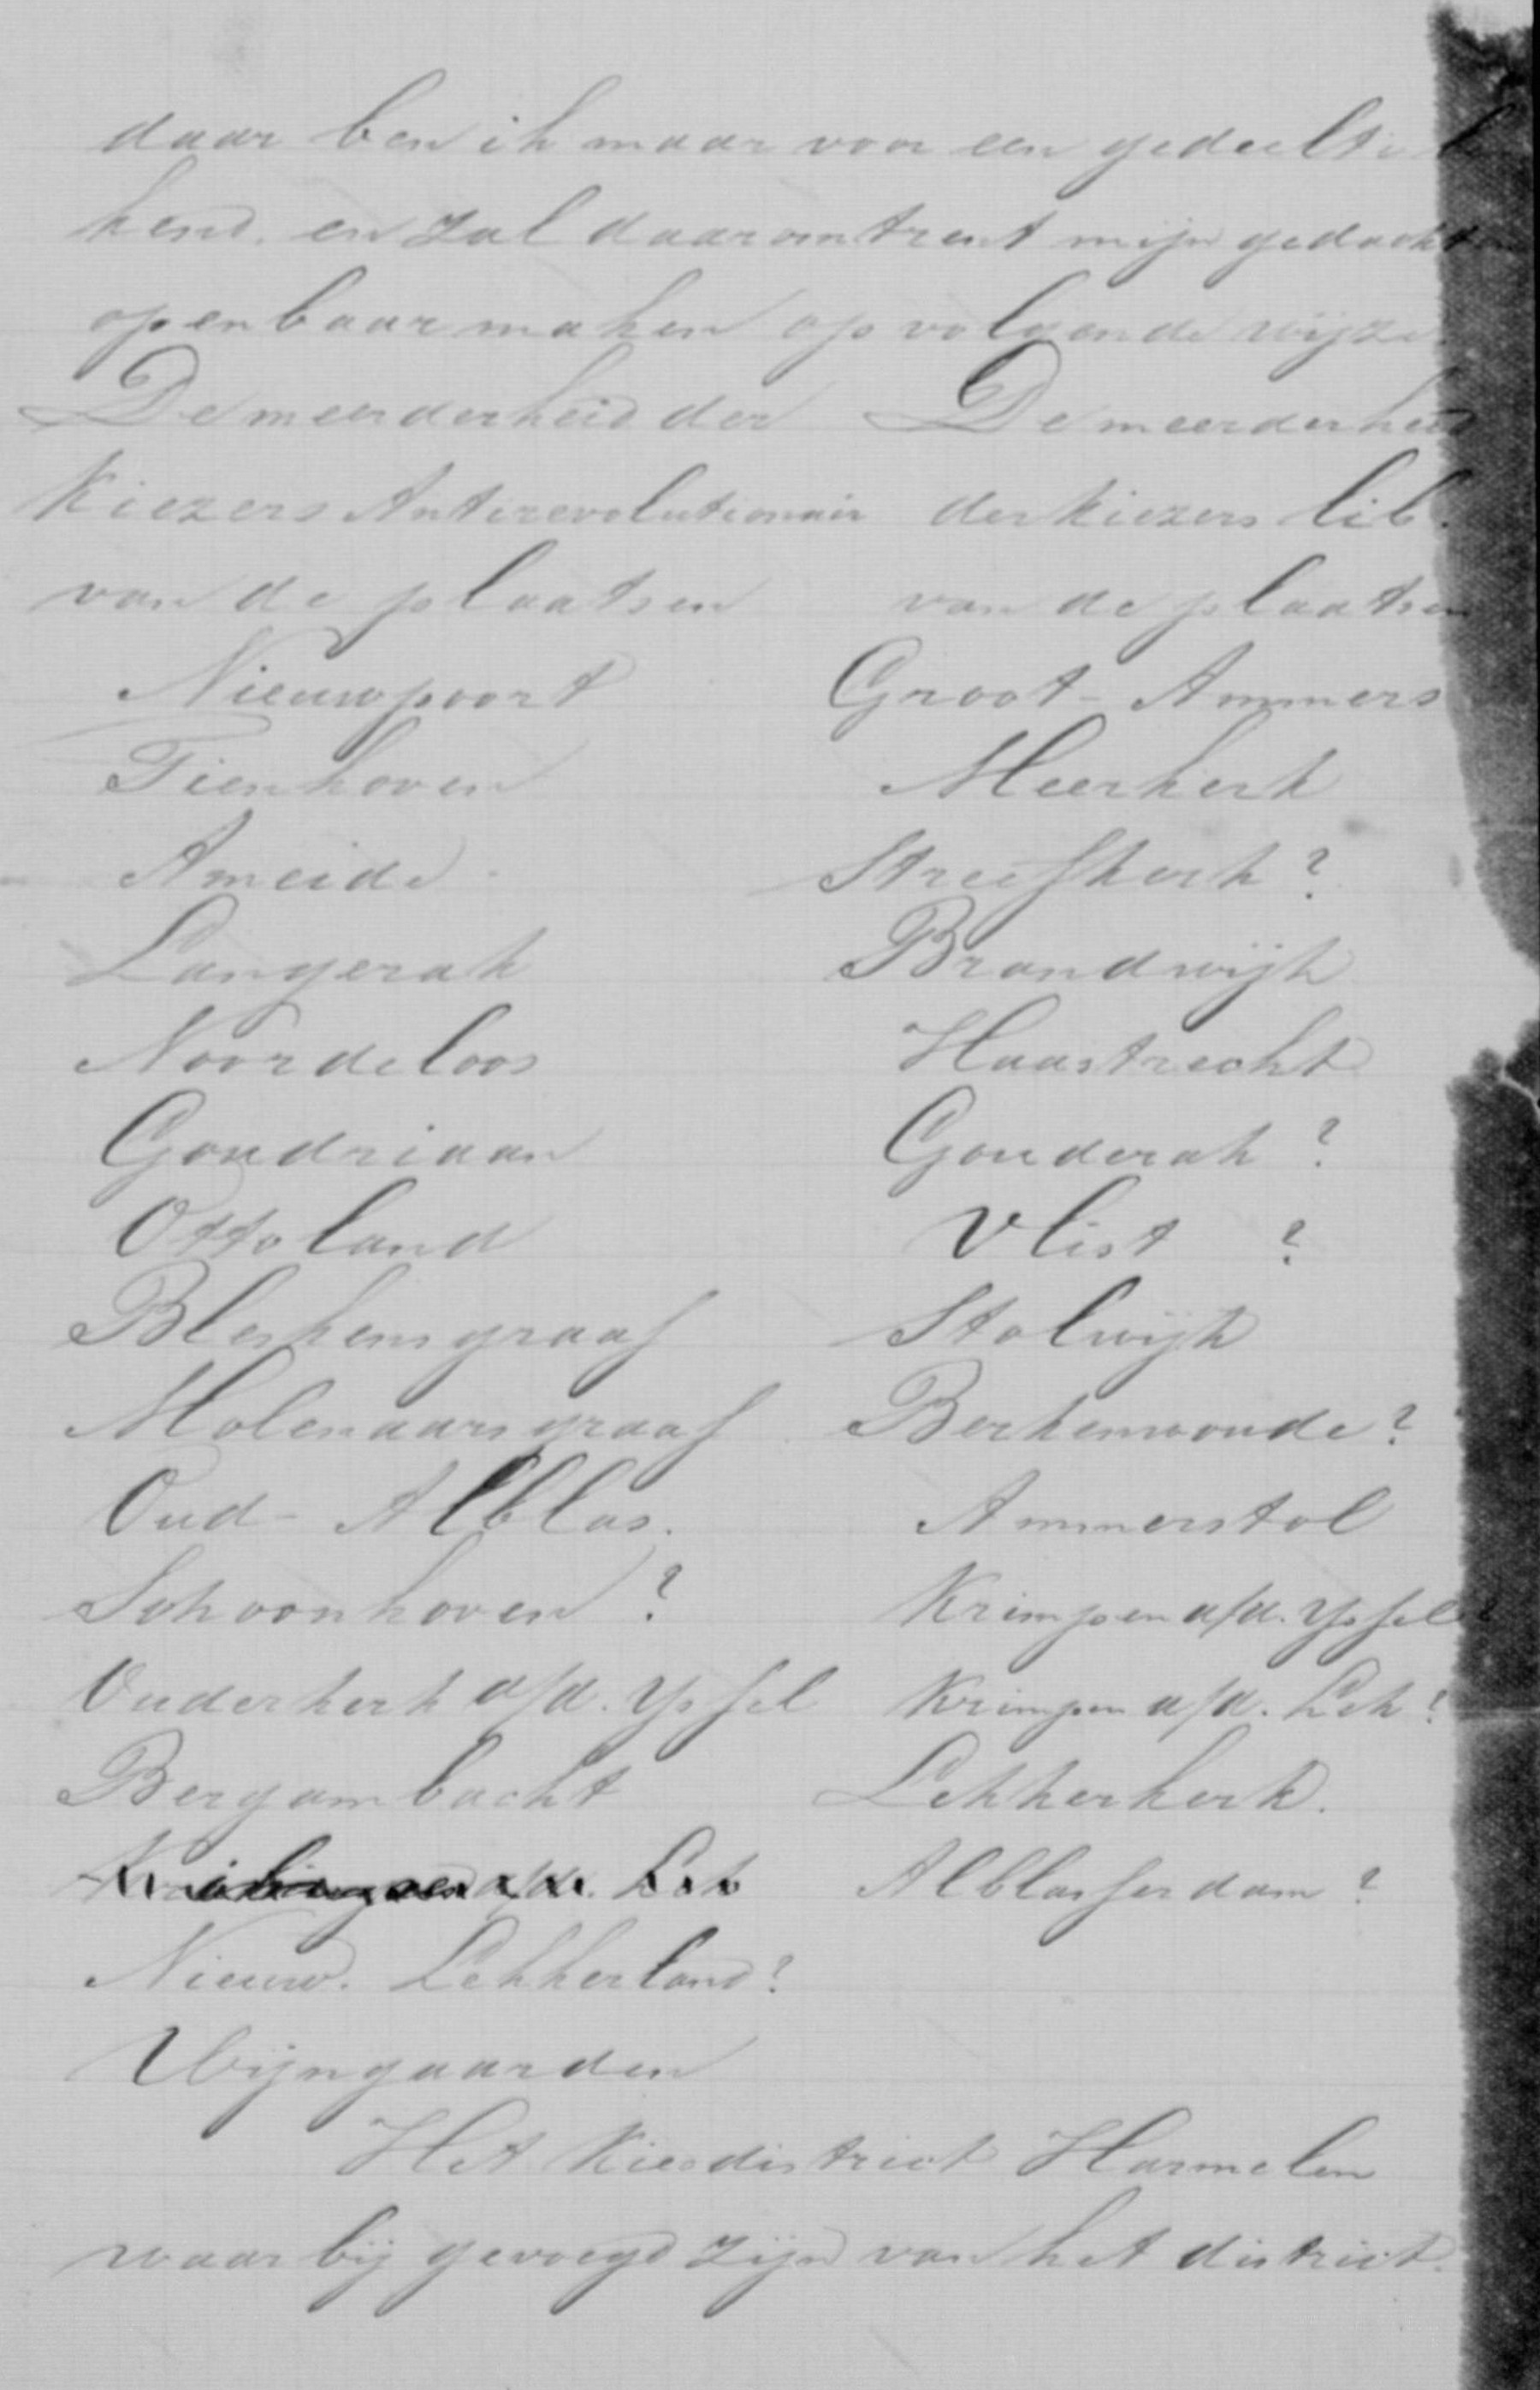 daar ben ik maar voor een gedeeltel
kend. en zal daaromtrent mijn gedachten
openbaar maken op volgende wijze
De meerderheid der De meerderheid
Kiezers Antirevolutionair der kiezers lib.
van de plaatsen van de plaatsen
Nieuwpoort Groot-Ammers
Tienhoven Meerkerk
Ameide Streefkerk ?
Langerak Brandwijk
Noordeloos Haastrecht
Goudriaan Gouderak ?
Ottoland Vlist ?
Bleskensgraaf Stolwijk
Molenaarsgraaf Berkenwoude ?
Oud-Alblas. Ammerstol
Schoonhoven ? Krimpen a/d. Yssel ?
Ouderkerk a/d. Yssel Krimpen a/d. Lek ?
Bergambacht Lekkerkerk.
a/d. Lek Alblasserdam ?
Nieuw. Lekkerland ?
Wijngaarden
Het Kiesdistrict Harmelen
waar bij gevoegd zijn van het district.